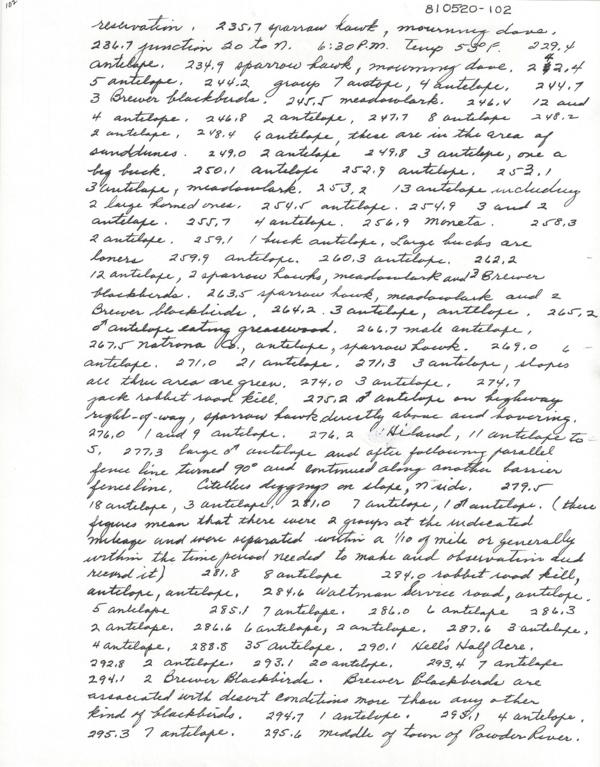 102
810520-102
reservation. 235.7 sparrow hawk, mourning dove.
236.7 junction 20 to N. 6:30 P.M. Temp 53°F. 229.4
antelope. 234.9 sparrow hawk, mourning dove. 242.4
5 antelope. 244.2 group 7 antope, 4 antelope. 244.7
3 Brewer blackbirds. 245.5 meadowlark. 246.4 12 and
4 antelope. 246.8 2 antelope, 247.7 8 antelope 248.2
2 antelope, 248.4 6 antelope, these are in the area of
sanddunes. 249.0 2 antelope 249.8 3 antelope, one a
big buck. 250.1 antelope 252.9 antelope. 253.1
3 antelope, meadowlark. 253.2 13 antelope including
2 large horned ones. 254.5 antelope. 254.9 3 and 2
antelope. 255.7 4 antelope. 256.9 Moneta. 258.3
2 antelope. 259.1 1 buck antelope, Large bucks are
loners 259.9 antelope. 260.3 antelope. 262.2
12 antelope, 2 sparrow hawks, meadowlark and 3 Brewer
blackbirds. 263.5 sparrow hawk, meadowlark and 2
Brewer blackbirds. 264.2 3 antelope, antelope. 265.2
♂ antelope eating greasewood. 266.7 male antelope,
267.5 Natrona Co., antelope, sparrow hawk. 269.0 6
antelope. 271.0 21 antelope. 271.3 3 antelope, slopes
all thru area are green. 274.0 3 antelope. 274.7
jack rabbit road kill. 275.2 ♂ antelope on highway
right-of-way, sparrow hawk directly above and hovering.
276.0 1 and 9 antelope. 276.2 Hiland, 11 antelope to
S. 277.3 large ♂ antelope and after following parallel
fence line turned 90° and continued along another barrier
fenceline. Citellus diggings on slope, N side. 279.5
18 antelope, 3 antelope. 281.0 7 antelope, 1 ♂ antelope. (these
figures mean that there were 2 groups at the indicated
mileage and were separated within a 1/10 of mile or generally
within the time period needed to make and observation and
record it) 281.8 8 antelope 284.0 rabbit road kill,
antelope, antelope. 284.6 Waltman Service road, antelope.
5 antelope 285.1 7 antelope. 286.0 6 antelope 286.3
2 antelope. 286.6 6 antelope, 2 antelope. 287.6 3 antelope,
4 antelope, 288.8 35 antelope. 290.1 Hell's Half Acre.
292.8 2 antelope. 293.1 20 antelope. 293.4 7 antelope
294.1 2 Brewer Blackbirds. Brewer blackbirds are
associated with desert conditions more than any other
kind of blackbirds. 294.7 1 antelope. 295.1 4 antelope.
295.3 7 antelope. 295.6 middle of town of Powder River.